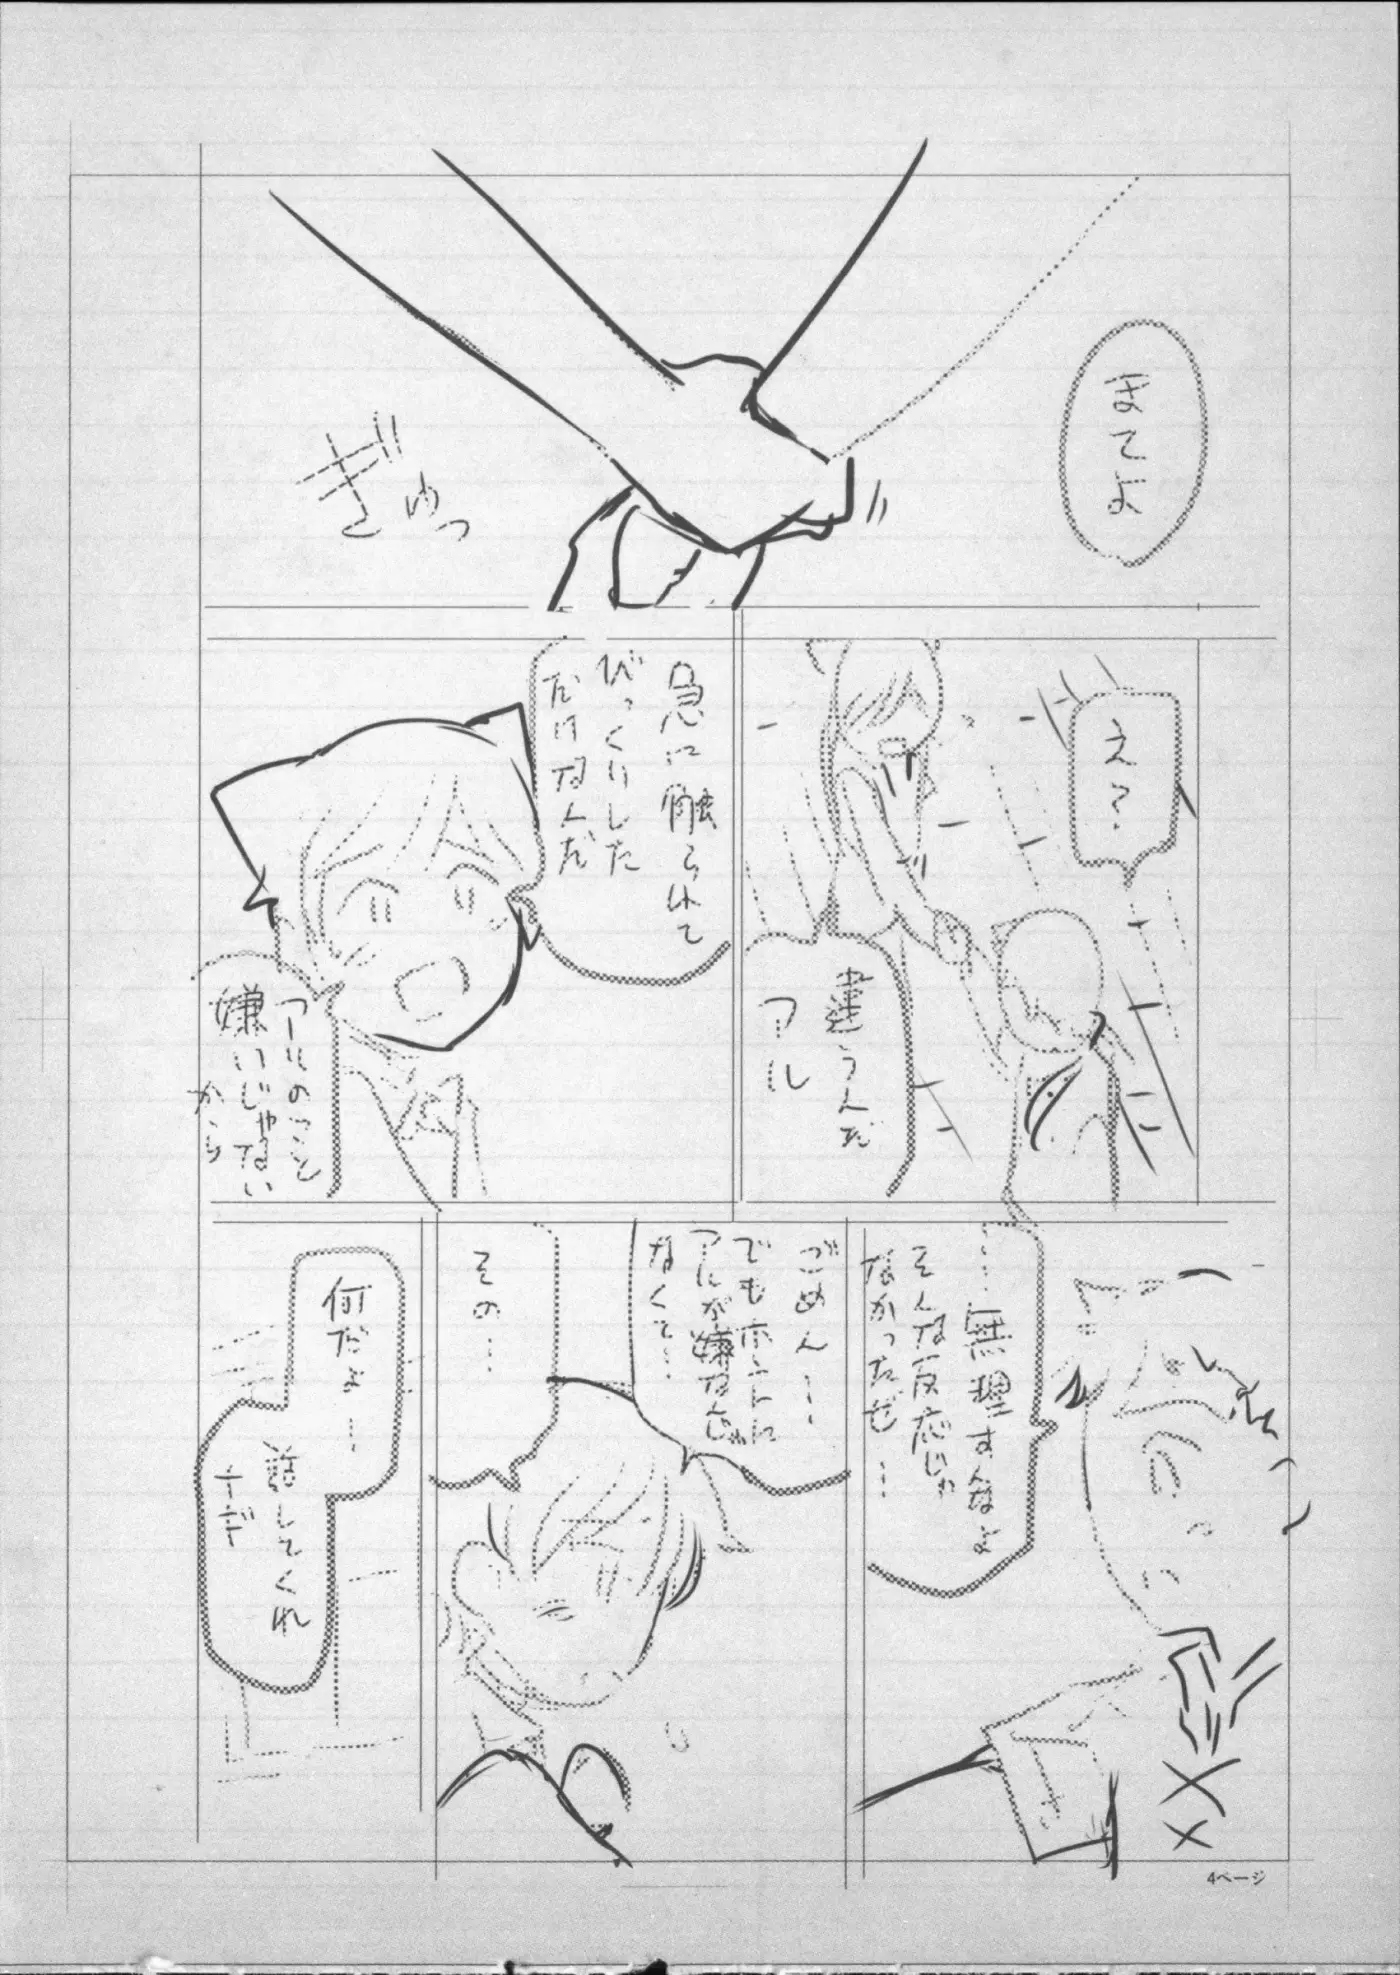 まてよ
ぎゅっ
え?
違うんだ
アル
急に触られて
びっくりした
だけなんだ
アルのこと
嫌いじゃない
から
…無理すんなよ
そんな反応じゃ
なかったぜ…
ごめん…
でもホントに
アルが嫌なんじゃ
なくて…
その…
何だよ…
話してくれ
ナギ
4ページ